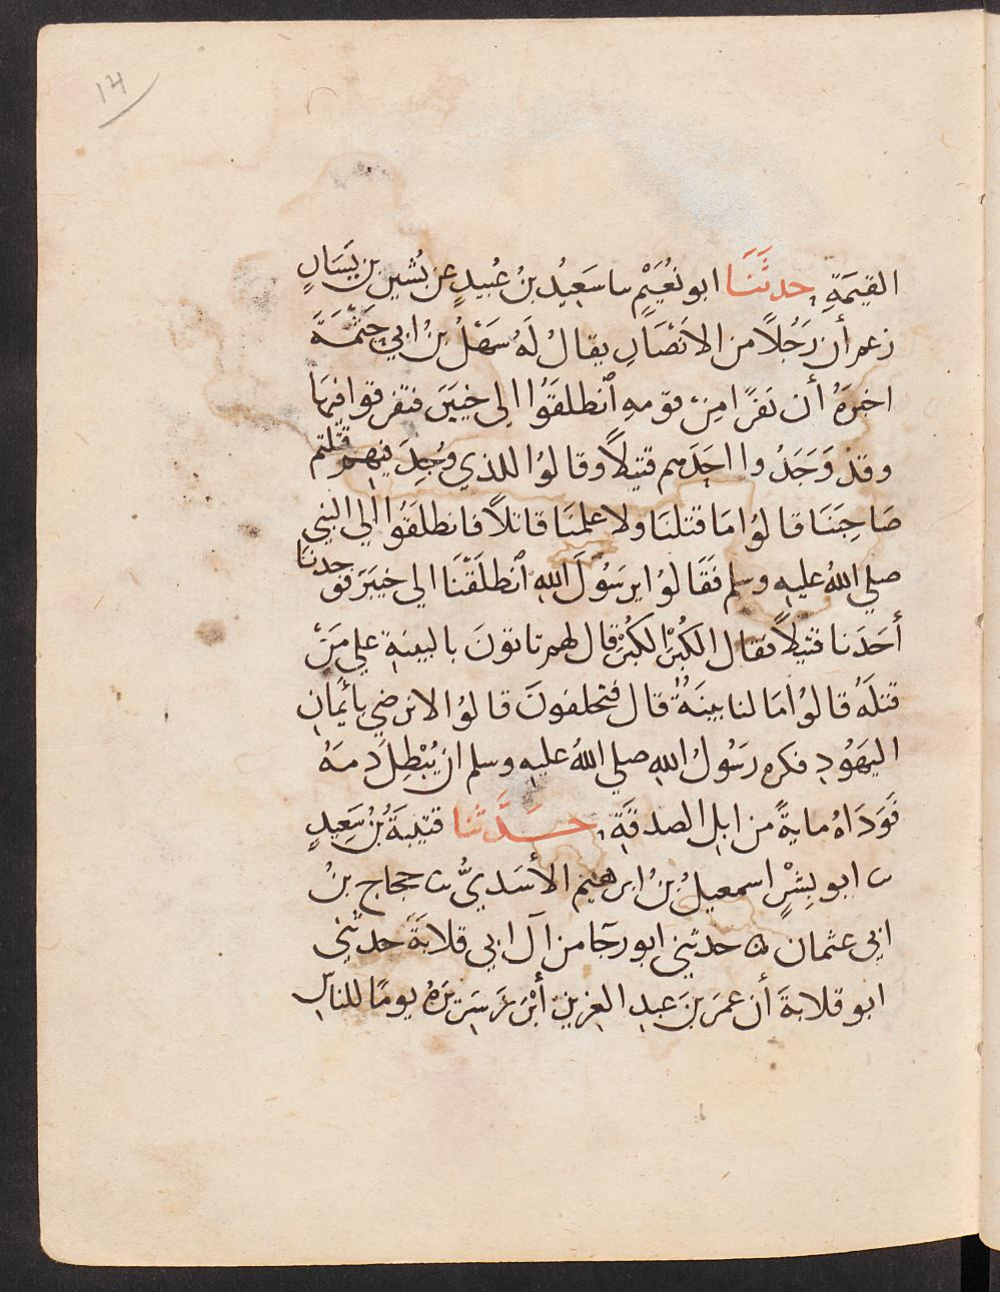 ١٢
القيمَةِ، حدثَنَا ابو نعُيَمْ سا سَعِيدُ بنُ عُبيدٍ عن بُشير بن يَسَارٍ
زعم أن رَجُلاً من الانَصْارِ يقال لَهُ سَهْلُ بنُ ابي حَثْمَةَ
اخبرَهُ أن نَفرًا مِن قومهِ ٱنطلقَوُا الى خيبَرَ فتفرقوا فيهَا
وقد وَجَدُوا احَدَهم قتيلاً وقالوُا للذي وُجِدَ فيهم قتلتم
صَاحِبَنَا قالوُا مَا قتلنَا ولا علمنَا قاتلاً فانطلقَوُا الى النبي
صلي اللهُ عليه وسلم فقَالوُا يرسَوُلَ اللهِ ٱنطلَقْنَا الي خيبَرَ فوجدنَا
أحَدَنا قتيلاً فقال الكُبْرَ الكُبْرَ قال لهم تاتونَ بالبينةِ علي مَنْ
قتلَهُ قالوُا مَا لنا بينَةٌ قال فتحلفونَ قالوُا لا نرضي بأيْمَانِ
اليهَوُدِ فكره رَسَوُلُ اللهِ صلي اللهُ عليه وسلم ان يُبْطِلَ دمَهُ
فَوَدَاهُ مايةً من ابلِ الصدقَةِ، حَدَّثنا قتيبَةُ بنُ سَعِيدٍ
ثنا ابو بِشْرٍ اسمعيلُ بنُ ابرهيم الأسَديُّ ثنا حجاج بنُ
ابي عثمان حدثني ابو رجَا من آل ابي قلابَةَ حدثني
ابو قلابةَ أن عمرَ بنَ عبدِ العزيزِ أبْرَزَ سَرِيرَهُ يومًا للناس